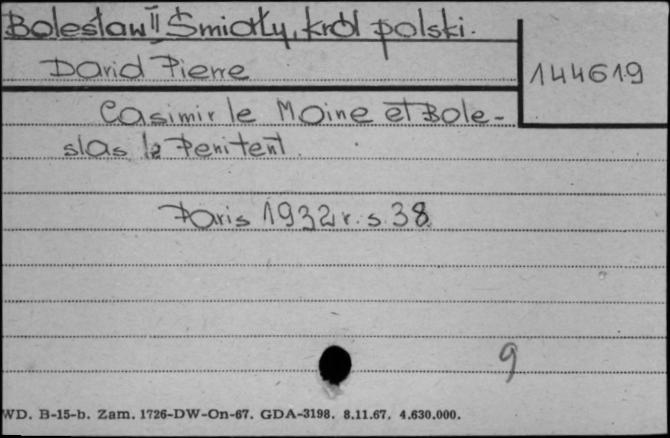 Bolesław II Śmiały, król polski.
David Pierre
144619
Casimir le Moine et Bole-
slas le Penitent.
Paris 1932 r. s. 38
9
WD. B-15-b. Zam. 1726-DW-On-67. GDA-3198. 8.11.67. 4.630.000.